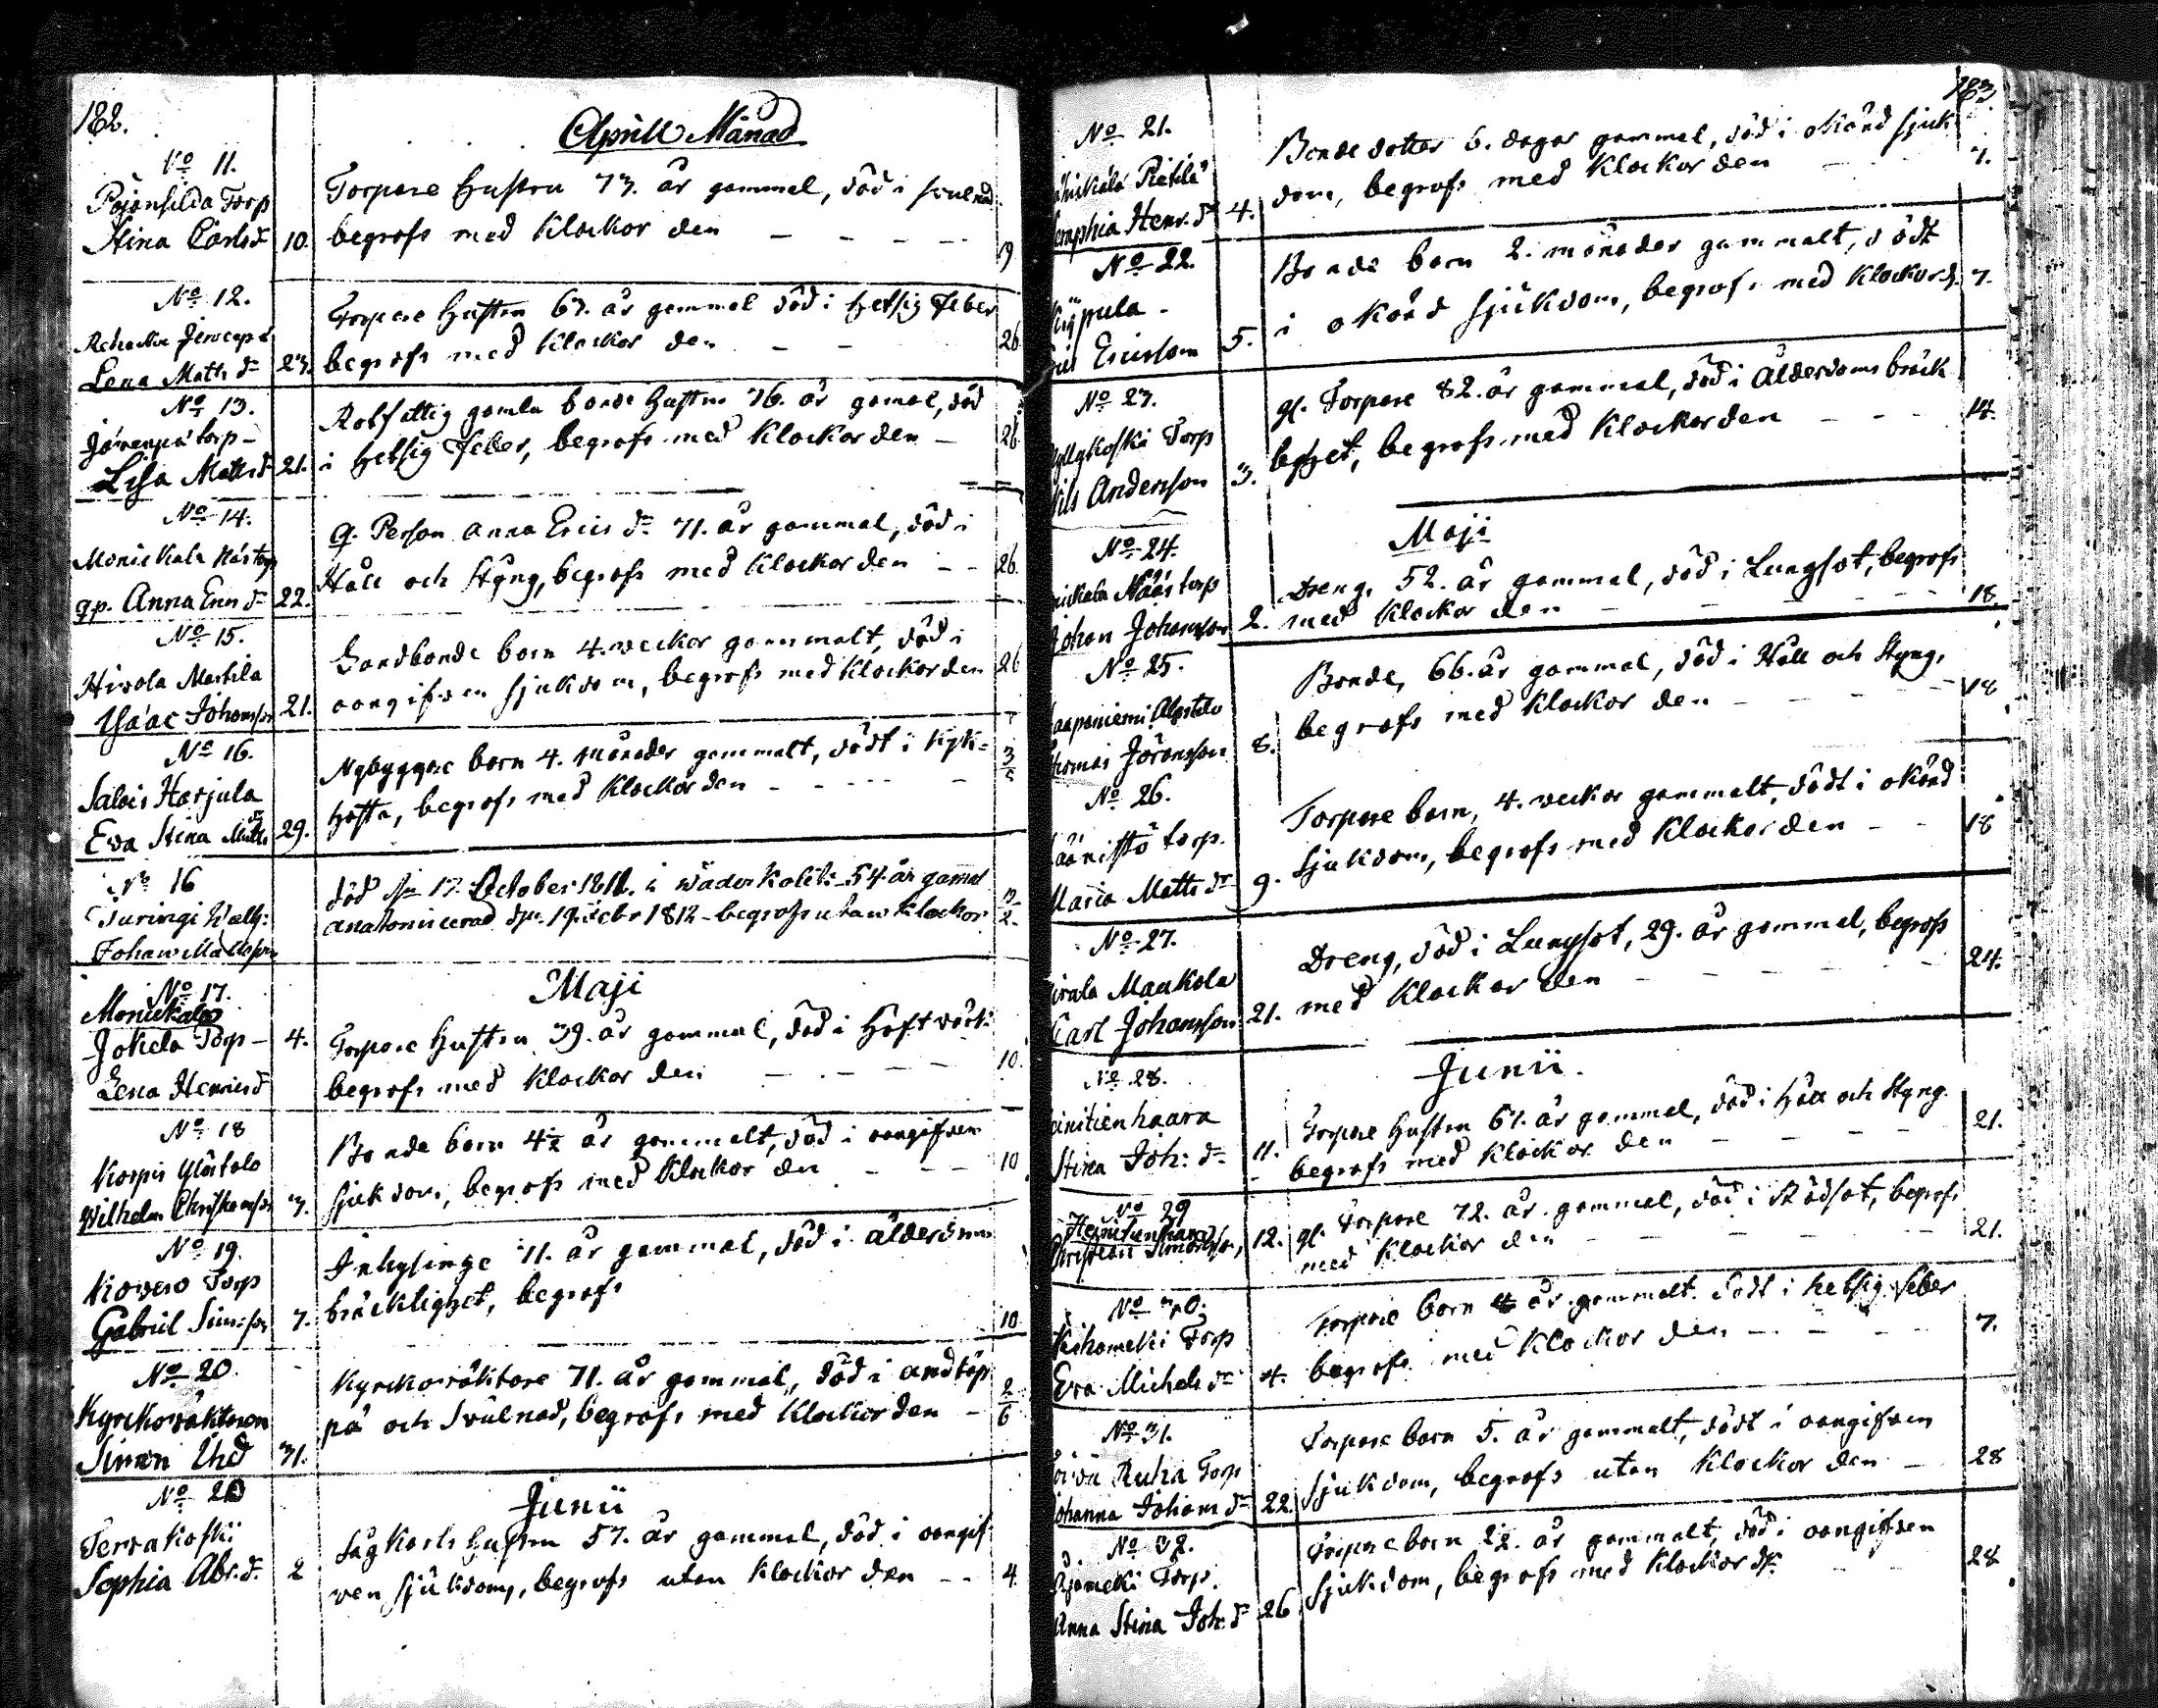 182.
Aprill Månad
No 11.
Torp
Stina Carlsdr
10.
Torpare Hustru 73. år gammal, död i svulnad
begrofs med Klockor den
No 12.
Lena Matts dr
23.
Torpare Hustru 67. år gammal död i Hetsig Feber
begrofs med Klockor den
26
No 13.
Järvenpä torp
Lisa Matts dr
21.
Rotfattig gamla bonde Hustru 76. år gamal, död
i Hetsig Feber, begrofs med Klockor den
26
No 14.
Monickala Näs torp
qp. Anna Erics dr
22.
q. Person Anna Erics dr 71. år gammal, död i
Håll och Styng, begrofs med Klockor den
26.
No 15.
Hirola Martila
Isaac Johansson
21.
Landbonde barn 4. veckor gammalt, död i
oangifven sjukdom, begrofs med Klockor den
26
No 16.
Salois Harjula
Eva Stina Matts dr
29.
Nybyggare barn 4. Månader gammalt, dödt i Kyk-
hosta, begrofs med Klockor den
3/5
No 16
Turingi
Johan Mattsson
död den 17. October 1811. i 54 år gamal
anatomicerad den 19 1812 - begrofs utan Klockor
Maji
No 17.
Monickala
Jokela Torp
Lena Henricsd
4.
Torpare Hustru 39. år gammal, död i Höftvärk
begrofs med Klockor den
10.
No 18
Korpis Ylöstalo
Wilhelm Christiansson
3.
Bonde barn 4½ år gammalt, död i oangifven
sjukdom, begrofs med Klockor den
10
No 19.
Kovero Torp
Gabriel Simonsson
7.
Inhysinge 71. år gammal, död i ålderdoms
bräcklighet, begrofs
10
No 20.
Kyrckoväktaren
Simon Uhd
31.
Kyrckoväktare 71. år gammal, död i andtäp
pa och Svulnad, begrofs med Klockor den
2/6
Junii
No 20
Tervakoski
Sophia Abr. dr.
2
Sågkarls Hustru 57. år gammal, död i oangif
ven sjukdom, begrofs utan Klockor den
4.
183
No 21.
Pietilä
Henr. dr
4.
Bonde dotter 6. dagar gammal, död i okänd sjuk
dom, begrofs med Klockor den
7.
No 22.
Ericsson
5.
Bonde barn 2. månader gammalt, dödt
i okänd sjukdom, begrofs med Klockor d.
7.
No 23.
Torp
Andersson
3.
gl. Torpare 82. år gammal, död i Ålderdoms bräck
lighet, begrofs med Klockor den
14.
Maji
No 24.
Nääs torp
Johan Johansson
2.
Dreng, 52. år gammal, död i Lungsot, begrofs
med Klockor den
18.
No 25.
Alastalo
Thomas Jöransson
8.
Bonde, 66. år gammal, död i Håll och Styng,
begrofs med Klockor den
18
No 26.
torp.
Maria Matts dr
9.
Torpare barn, 4. veckor gammalt, dödt i okänd
sjukdom, begrofs med Klockor den
18
No 27.
Maukola
Carl Johansson
21.
Dreng, död i Lungsot, 29. år gammal, begrofs
med Klockor den
24.
Junii.
No 28.
Stina Joh: dr
11.
Torpare Hustru 67. år gammal, död i Håll och Styng.
begrofs med Klockor den
21.
No 29
Heinitienhaara
Christian Simonsson,
12.
gl. Torpare 72. år gammal, död i Rödsot, begrofs
med Klockor den
21.
No 30.
Torp
Eva Michels dr
4.
Torpare barn år gammalt. dödt i hetsig feber
begrofs med Klockor den
7.
No 31.
Ruha Torp
Johanna Johans dr
22.
Torpare barn 5. år gammalt, dödt i oangifven
sjukdom, begrofs utan Klockor den
28
No 32.
Torp.
Anna Stina Joh. dr
26
Torpare barn 2½. år gammalt, död i oangifven
sjukdom, begrofs med Klockor dn.
28